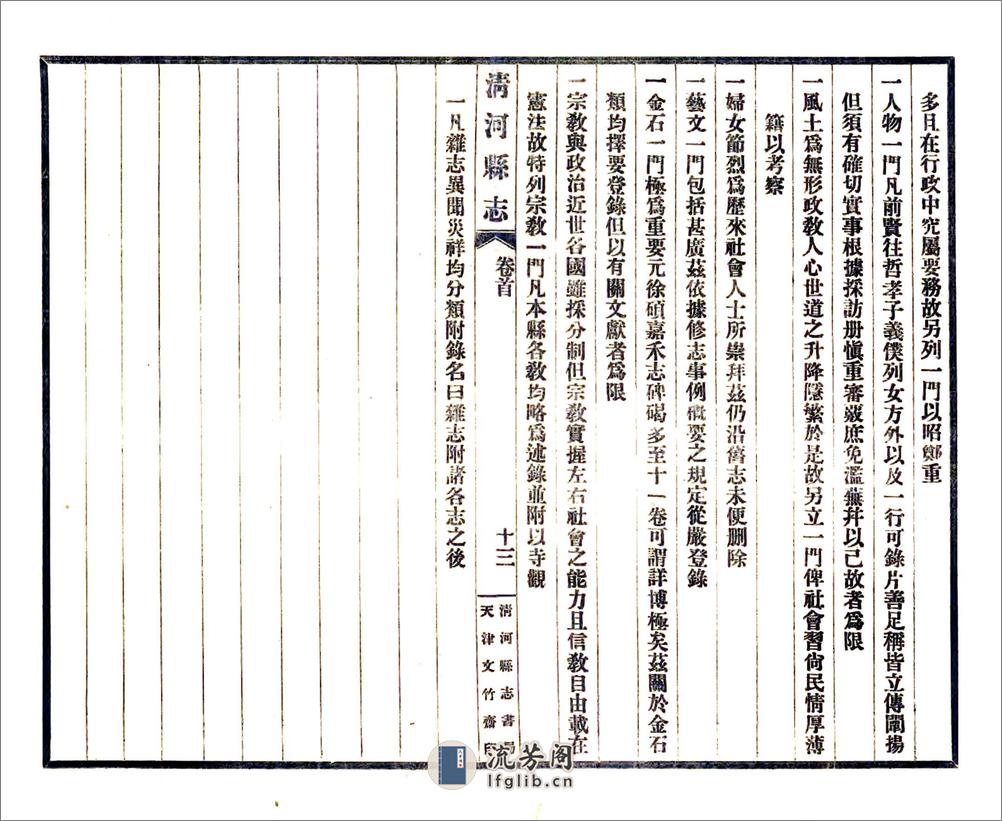 多且在行政中究屬要務故另列一門以昭鄭重
一人物一門凡前賢往哲孝子義僕列女方外以及一行可錄片善足稱皆立傳闡揚
但須有確切實事根據採訪册愼重審覈庶免濫蕪幷以已故者爲限
一風土爲無形政敎人心世道之升降隱繁於是故另立一門俾社會習尙民情厚薄
籍以考察
一婦女節烈爲歷來社會人士所崇拜茲仍沿舊志未便删除
一藝文一門包括甚廣茲依據修志事例槪要之規定從嚴登錄
一金石一門極爲重要元徐碩嘉禾志碑碣多至十一卷可謂詳博極矣茲關於金石
類均擇要登錄但以有關文獻者爲限
一宗敎與政治近世各國雖採分制但宗敎實握左右社會之能力且信敎自由載在
憲法故特列宗敎一門凡本縣各敎均略爲述錄並附以寺觀
淸河縣志
卷首
十三
淸河縣志書局
天津文竹齋
一凡雜志異聞災祥均分類附錄名曰雜志附諸各志之後
流芳阁
lfglib.cn